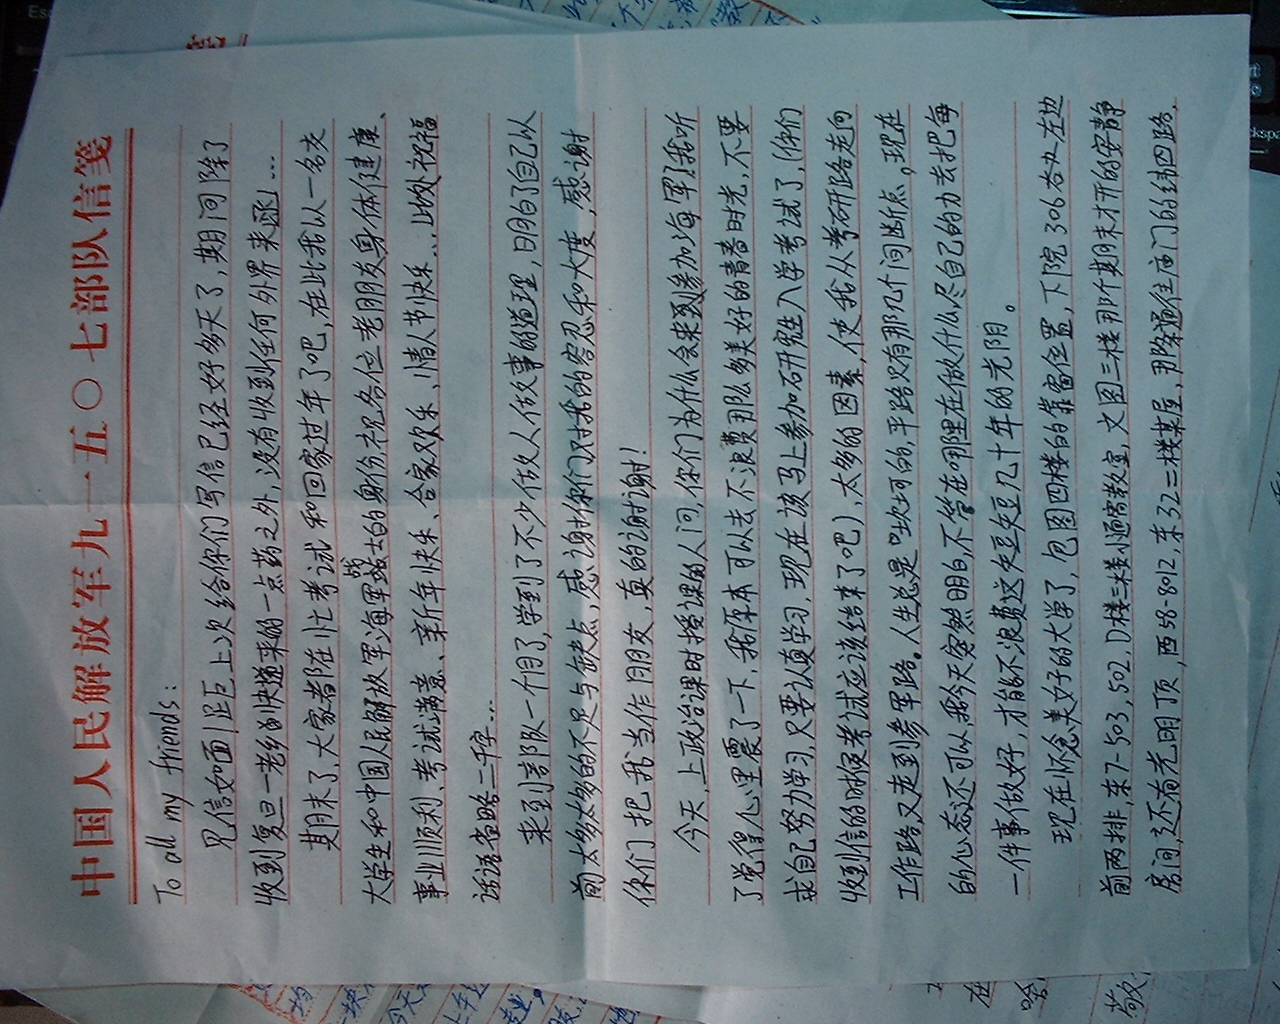 中国人民解放军九一五〇七部队信笺
To all my friends:
见信如面!距上次给你们写信已经好多天了,期间除了
收到复旦一老乡的快递来的一点药之外,没有收到任何外界来函…
期末了,大家都在忙考试和回家过年了吧,在此我以一名交
大学生和中国人民解放军海军战士的身份,祝各位老朋友身体健康、
事业顺利、考试满意、新年快乐、合家欢乐、情人节快乐…此处祝福
话语省略二千字…
来到部队一个月了,学到了不少做人做事的道理,明白了自己以
前太多太多的不足与缺点,感谢你们对我的容忍和大度,感谢
你们把我当作朋友,真的谢谢!
今天,上政治课时授课的人问,你们为什么会来到参加海军?我听
了觉得心里震了一下,我原本可以去不浪费那么多美好的青春时光,不要
求自己努力学习,只要认真学习,现在该马上参加研究生入学考试了,(你们
收到信的时候考试应该结束了吧),太多的因素,使我从考研路走向
工作路又走到参军路。人生总是坎坷的,平路只有那几个间断点,现在
的心态还可以,我今天突然明白,不管在哪里在做什么,尽自己的力去把每
一件事做好,才能不浪费这短短几十年的光阴。
现在怀念美好的大学了,包图四楼的靠窗位置,下院306右火左边
前两排,东7-503,502,D楼三楼小通宵教室,文图三楼那个期末才开的安静
房间,还有光明顶,西58-8012,东32二楼某屋,那条通往庙门的纬四路,